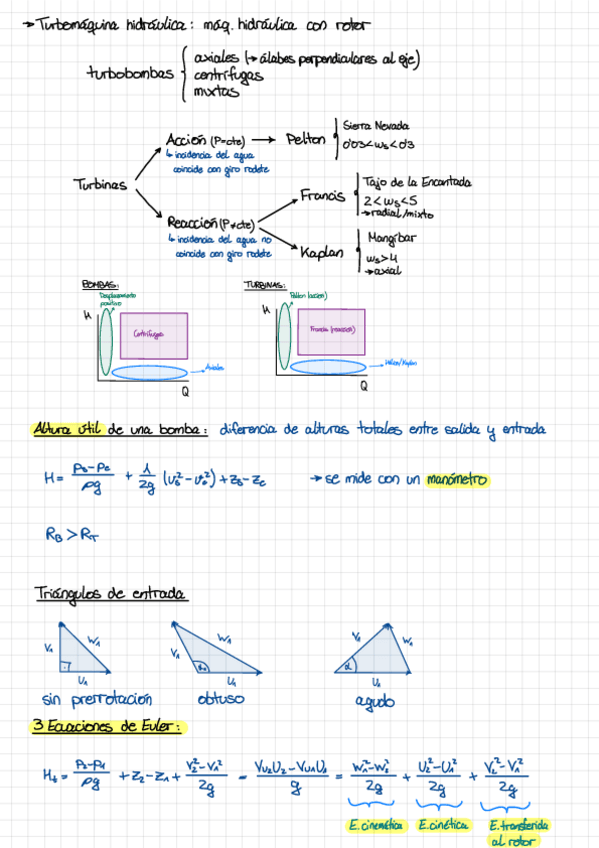 → Turbomáquina hidráulica: máq. hidráulica con rotor
turbobombas
axiales (→ álabes perpendiculares al eje)
centrífugas
mixtas
Turbinas
Acción (P=cte) → Pelton
↳ incidencia del agua
coincide con giro rodete
Sierra Nevada
0'03<ws<0'3
Reacción (P≠cte)
↳ incidencia del agua no
coincide con giro rodete
Francis
Tajo de la Encantada
2<ws<5
→ radial/mixto
Kaplan
Mangíbar
ws>4
→ axial
BOMBAS:
Desplazamiento
positivo
H
Centrífugas
Axiales
Q
TURBINAS:
Pelton (acción)
H
Francis (reacción)
Hélice/Kaplan
Q
Altura útil de una bomba: diferencia de alturas totales entre salida y entrada
H = (Ps-Pe)/ρg + 1/2g (vs²-ve²) + zs-ze → se mide con un manómetro
RB > RT
Triángulos de entrada
V1 W1 U1
V1 W1 U1
V1 W1 U1
sin prerrotación obtuso agudo
3 Ecuaciones de Euler:
Ht = (P2-P1)/ρg + z2-z1 + (V2²-V1²)/2g = (Vu2U2-Vu1U1)/g = (W1²-W2²)/2g + (U2²-U1²)/2g + (V2²-V1²)/2g
E.cinemática E.cinética E.transferida
al rotor